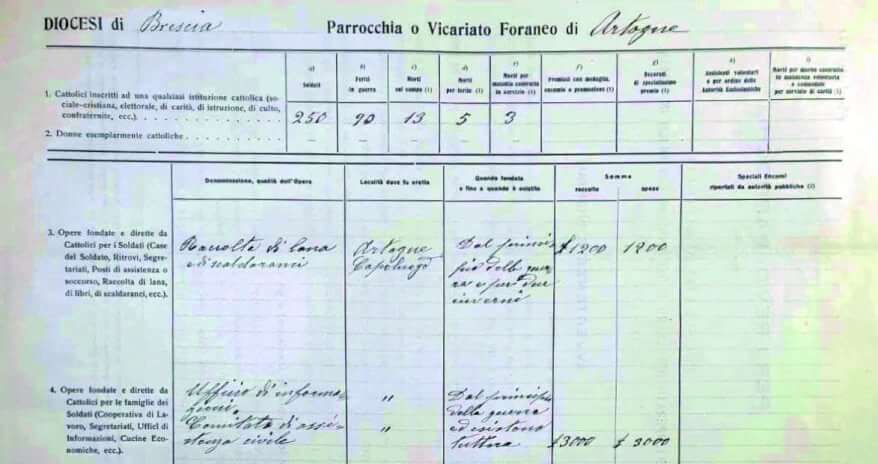 DIOCESI di Brescia Parrocchia o Vicariato Foraneo di Artogne
a) Soldati
b) Feriti in guerra
c) Morti sul campo (1)
d) Morti per ferite (1)
e) Morti per malattia contratta in servizio (1)
f) Premiati con medaglia, encomio o promozione (1)
g) Decorati di specialissimo premio (1)
h) Assistenti volontari o per ordine delle Autorità Ecclesiastiche
i) Morti per morbo contratto in assistenza volontaria o comandata per servizio di carità (1)
1. Cattolici inscritti ad una qualsiasi istituzione cattolica (so-
ciale-cristiana, elettorale, di carità, di istruzione, di culto,
confraternite, ecc.)
250 90 13 5 3
2. Donne esemplarmente cattoliche
Denominazione, qualità dell'Opera
Località dove fu eretta
Quando fondata
e fino a quando è esistita
Somme
raccolte spese
Speciali Encomi
riportati da autorità pubbliche (2)
3. Opere fondate e dirette da
Cattolici per i Soldati (Case
del Soldato, Ritrovi, Segre-
tariati, Posti di assistenza o
soccorso, Raccolta di lana,
di libri, di scaldaranci, ecc.)
Raccolte di lana
e di scaldaranci
Artogne
Capoluogo
Dal princi-
pio della guer-
ra e per due
inverni
£ 1200 1200
4. Opere fondate e dirette da
Cattolici per le famiglie dei
Soldati (Cooperativa di La-
voro, Segretariati, Uffici di
Informazioni, Cucine Eco-
nomiche, ecc.)
Ufficio di informa-
zioni.
Comitato di assi-
stenza civile
"
"
Dal principio
della guerra
ed esistono
tuttora
£ 3000 £ 3000